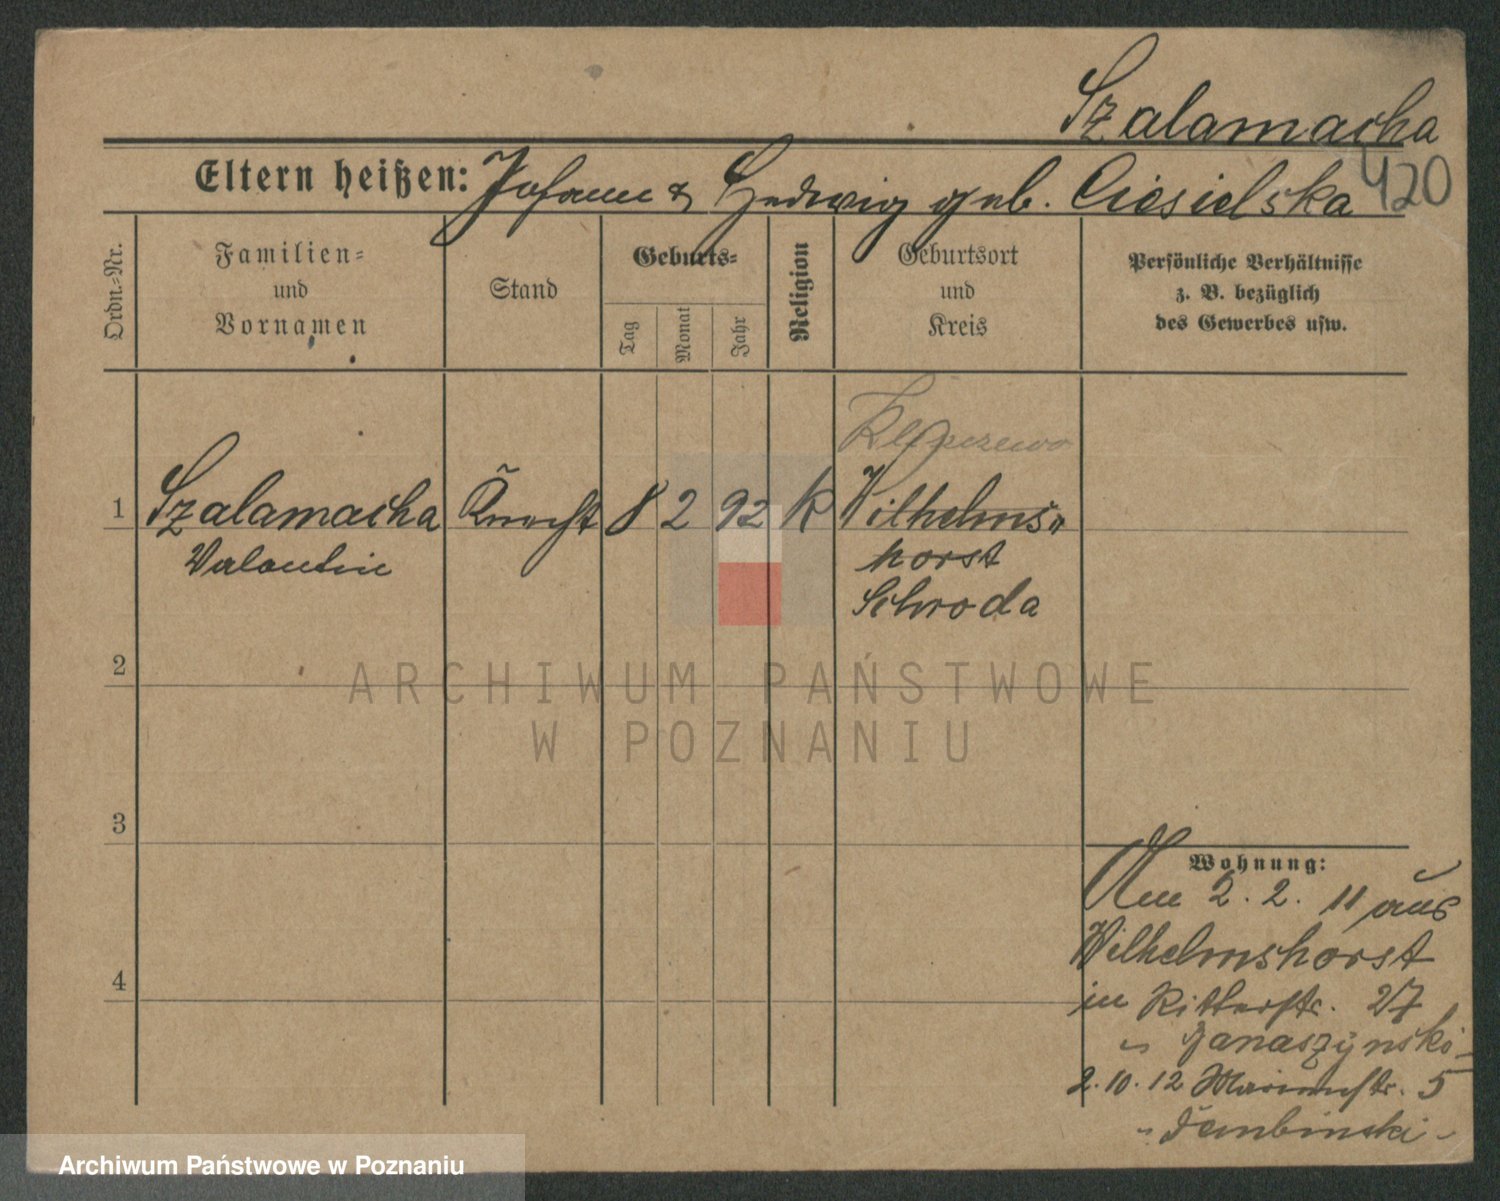 Szalamacha
420
Eltern heißen: Johann & Hedwig geb. Ciesielska
Ordn.-Nr.
Familien-
und
Vornamen
Stand
Geburts-
Tag
Monat
Jahr
Religion
Geburtsort
und
Kreis
Persönliche Verhältnisse
z. B. bezüglich
des Gewerbes usw.
1 Szalamacha Knecht 8 2 92 K Wilhelms"
Valentin
horst
Schroda
2
3
4
Wohnung:
Am 2. 2. 11 aus
Wilhelmshorst
in Ritterstr. 27
Janaszynski
2.10.12 5
Dembinski
ARCHIWUM PAŃSTWOWE
W POZNANIU
Archiwum Państwowe w Poznaniu